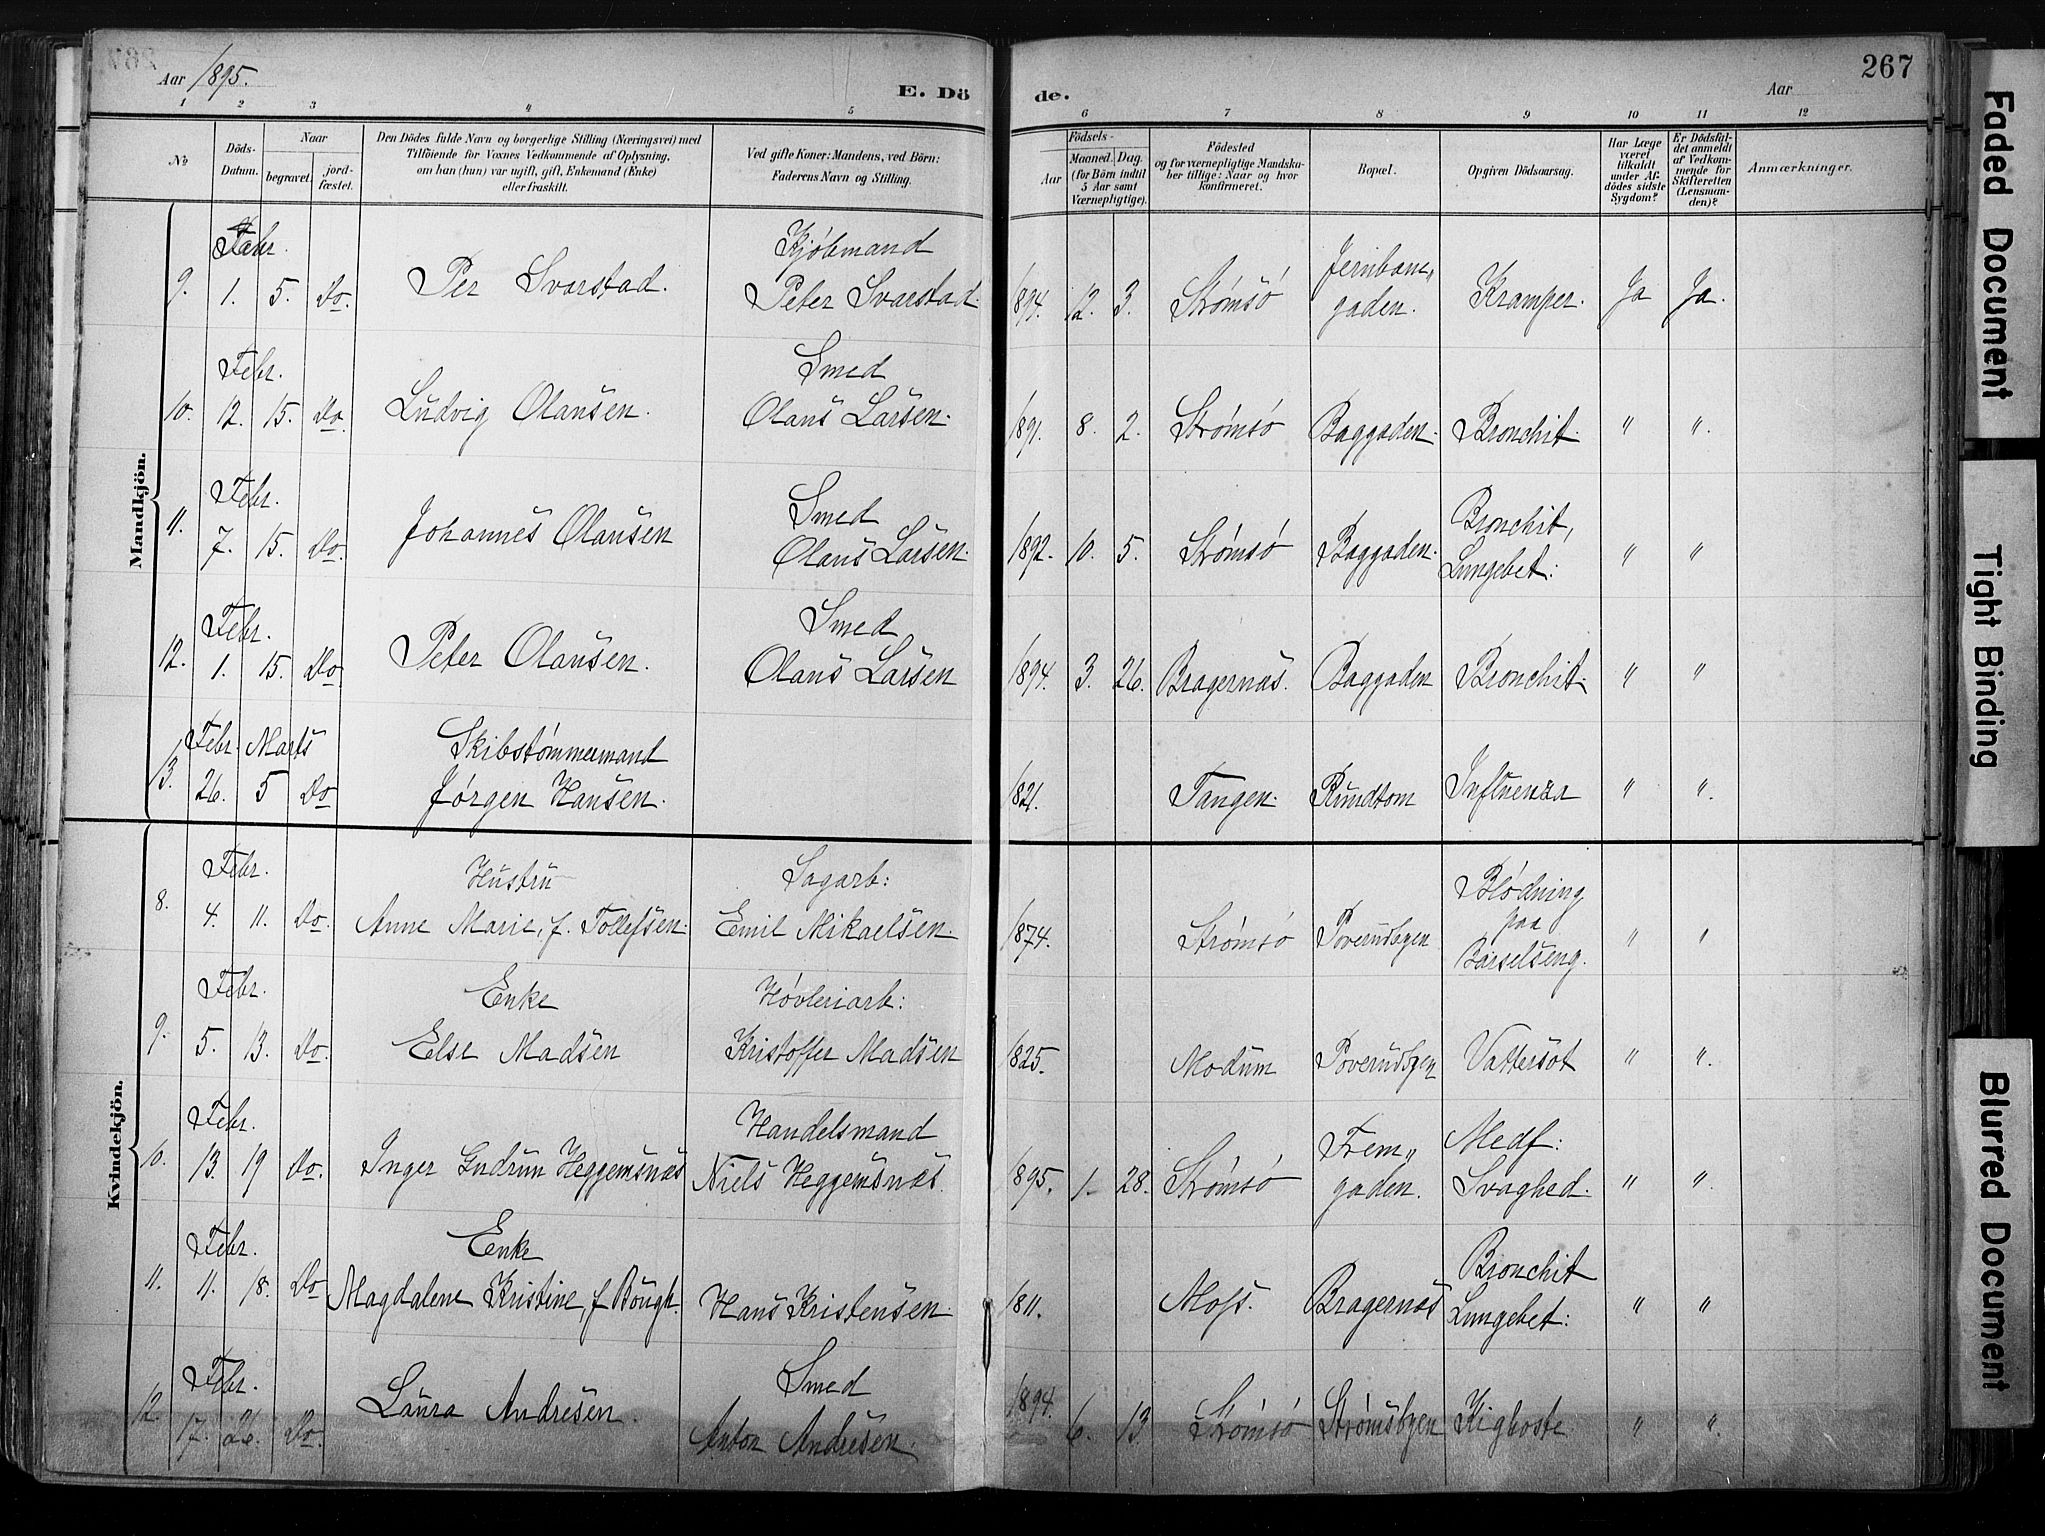 267
Aar 1895.
E. Dö de.
Aar
1 2 3 4 5 6 7 8 9 10 11 12
No
Döds-Datum.
Naar
begravet.
jord-fæstet.
Den Dödes fulde Navn og borgerlige Stilling (Næringsvei) med
Tilföiende for Voxnes Vedkommende af Oplysning,
om han (hun) var ugift, gift, Enkemand (Enke)
eller fraskilt.
Ved gifte Koner: Mandens, ved Börn:
Faderens Navn og Stilling.
Födsels-
Aar
Maaned. Dag.
(for Börn indtil
5 Aar samt
Værnepligtige).
Födested
og for værnepligtige Mandska-
ber tillige: Naar og hvor
konfirmeret.
Bopæl.
Opgiven Dödsaarsag.
Har Læge
været
tilkaldt
under Af-
dödes sidste
Sygdom?
Er Dödsfal-
det anmeldt
af Vedkom-
mende for
Skifteretten
(Lensman-
den)?
Anmærkninger.
Mandkjön.
Febr. Kjöbmand Jernbane„
9. 1. 5. Do. Per Svarstad. Peter Svarstad. 1894. 12. 3. Strømsö gaden. Kramper. Ja Ja.
Febr. Smed
10. 12. 15. Do. Ludvig Olausen. Olaus Larsen. 1891. 8. 2. Strømsö Baggaden. Bronchit. " ".
Febr. Smed Bronchit,
11. 7. 15. Do. Johannes Olausen Olaus Larsen. 1892. 10. 5. Strømsö Baggaden. Lungebet: " "
Febr. Smed
12. 1. 15. Do. Peter Olausen. Olaus Larsen 1894. 3. 26. Bragernæs. Baggaden Bronchit. " "
Febr. Marts Skibstømmermand
13. 26. 5 Do Jørgen Hansen. 1821. Tangen. Rundtom Influenza " ".
Kvindekjön.
Febr. Hustru Sagarb: Blödning
8. 4. 11. Do. Anne Marie, f. Tollefsen. Emil Mikaelsen. 1874. Strømsö Poverudbyen paa " "
Barselseng.
Febr. Enke Høvleriarb:
9. 5. 13. Do. Else Madsen Kristoffer Madsen 1825. Modum Poverudbyen Vattersot " ".
Febr. Handelsmand Frem„ Medf:
10. 13. 19 Do. Inger Gudrun Heggemsnæs Niels Heggemsnæs. 1895. 1. 28. Strømsö gaden. Svaghed. " ".
Febr. Enke Bronchit
11. 11. 18. Do Magdalene Kristine, f Bough. Hans Kristensen. 1811. Moss. Bragernæs Lungebet: " "
Febr. Smed
12. 17. 26. Do. Laura Andresen. Anton Andresen. 1894. 6. 13 Strømsö Strømsbyen Kighoste " ".
Faded Document
Tight Binding
Blurred Document